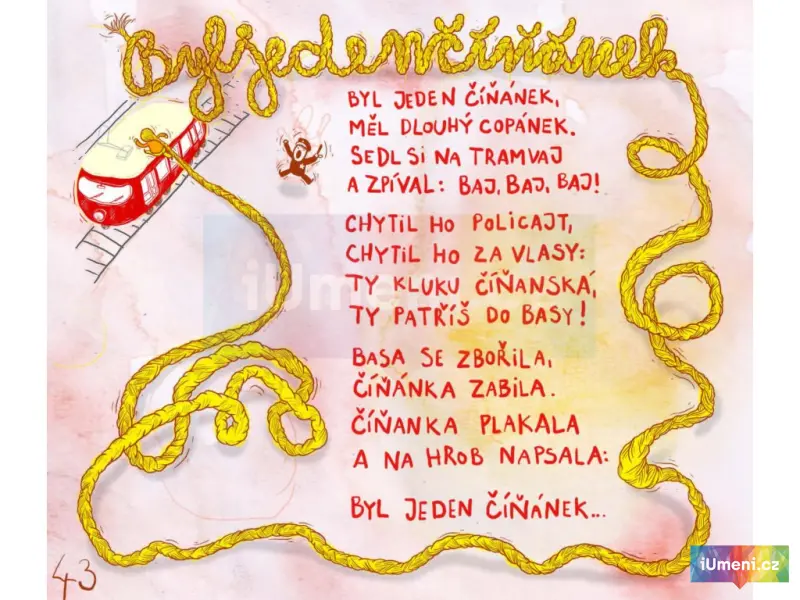 Byl jeden číňánek
BYL JEDEN ČÍŇÁNEK,
MĚL DLOUHÝ COPÁNEK.
SEDL SI NA TRAMVAJ
A ZPÍVAL: BAJ, BAJ, BAJ!
CHYTIL HO POLICAJT,
CHYTIL HO ZA VLASY:
TY KLUKU ČÍŇANSKÁ,
TY PATŘÍŠ DO BASY!
BASA SE ZBOŘILA,
ČÍŇÁNKA ZABILA.
ČÍŇANKA PLAKALA
A NA HROB NAPSALA:
BYL JEDEN ČÍŇÁNEK...
43
iUmeni.cz
iUmeni.cz